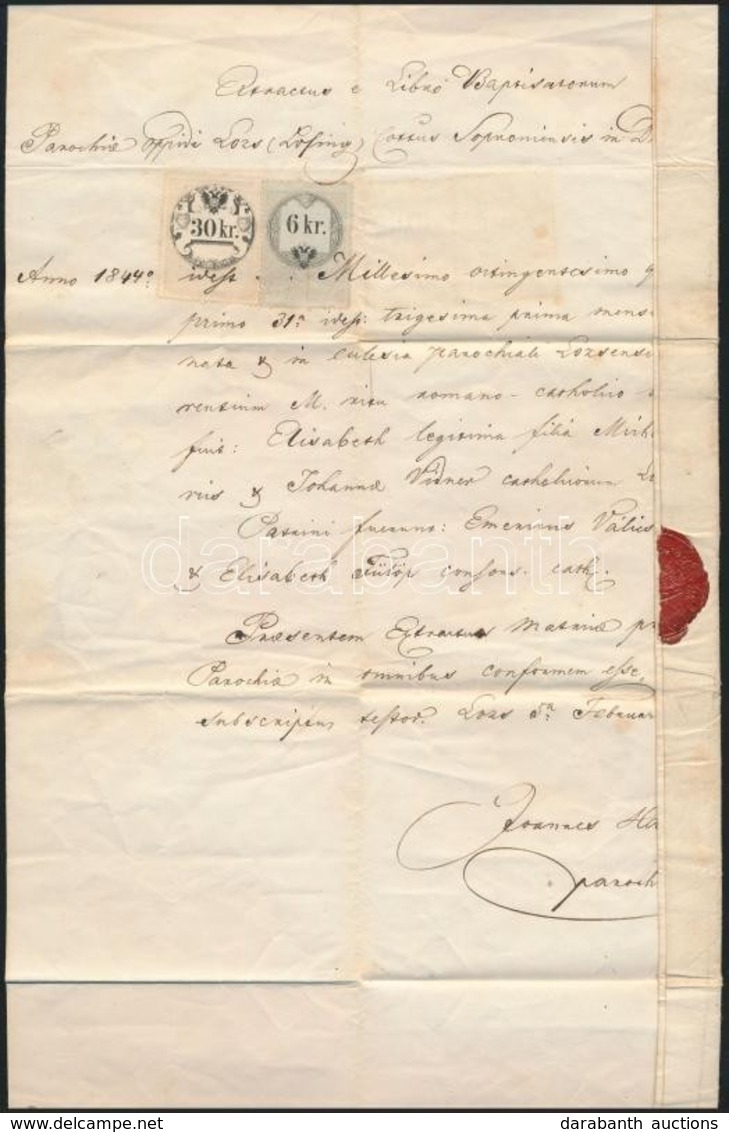 Extractus e Libro Baptisatorum
Parochiæ Oppidi Lozs (Losing) Cottus Soproniensis in D
30 kr.
6 kr.
Anno 1844º idest Millesimo octingentesimo q
primo 31ª idest: trigesima prima mens
nata & in Eclesia parochiali Lozsensi
rentium M. ritu romano-catholico
fuit: Elisabeth legitima filia Mich
ris & Johannæ Vidner catholicorum Lo
Patrini fuerunt: Emericus Válics
& Elisabeth Fülöp consors. cath.
Præsentem Extractus Matricæ
Parochiæ in omnibus conformem esse,
subscriptus testor. Lozs 5ª Februar
Joannes
paroch
darabanth
darabanth auctions